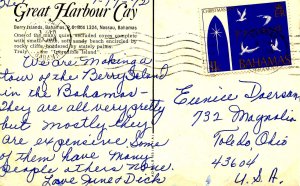 Great Harbour Cay
Berry Islands, Bahamas, P.O. Box
Nassau, Bahamas
One of the many quiet secluded coves complete
with small, soft sand beach encircled by
rocky cliffs, bordered by stately palms
Truly,
We are making a
tour of the Berry Island
in the Bahamas -
They are all very pretty
but mostly they
are expencive. Some
of them have many
people others none.
Love June & Dick
CHRISTMAS
BAHAMAS
Eunice Doerson
732 Magnolia
Toledo, Ohio
43604
U.S.A.